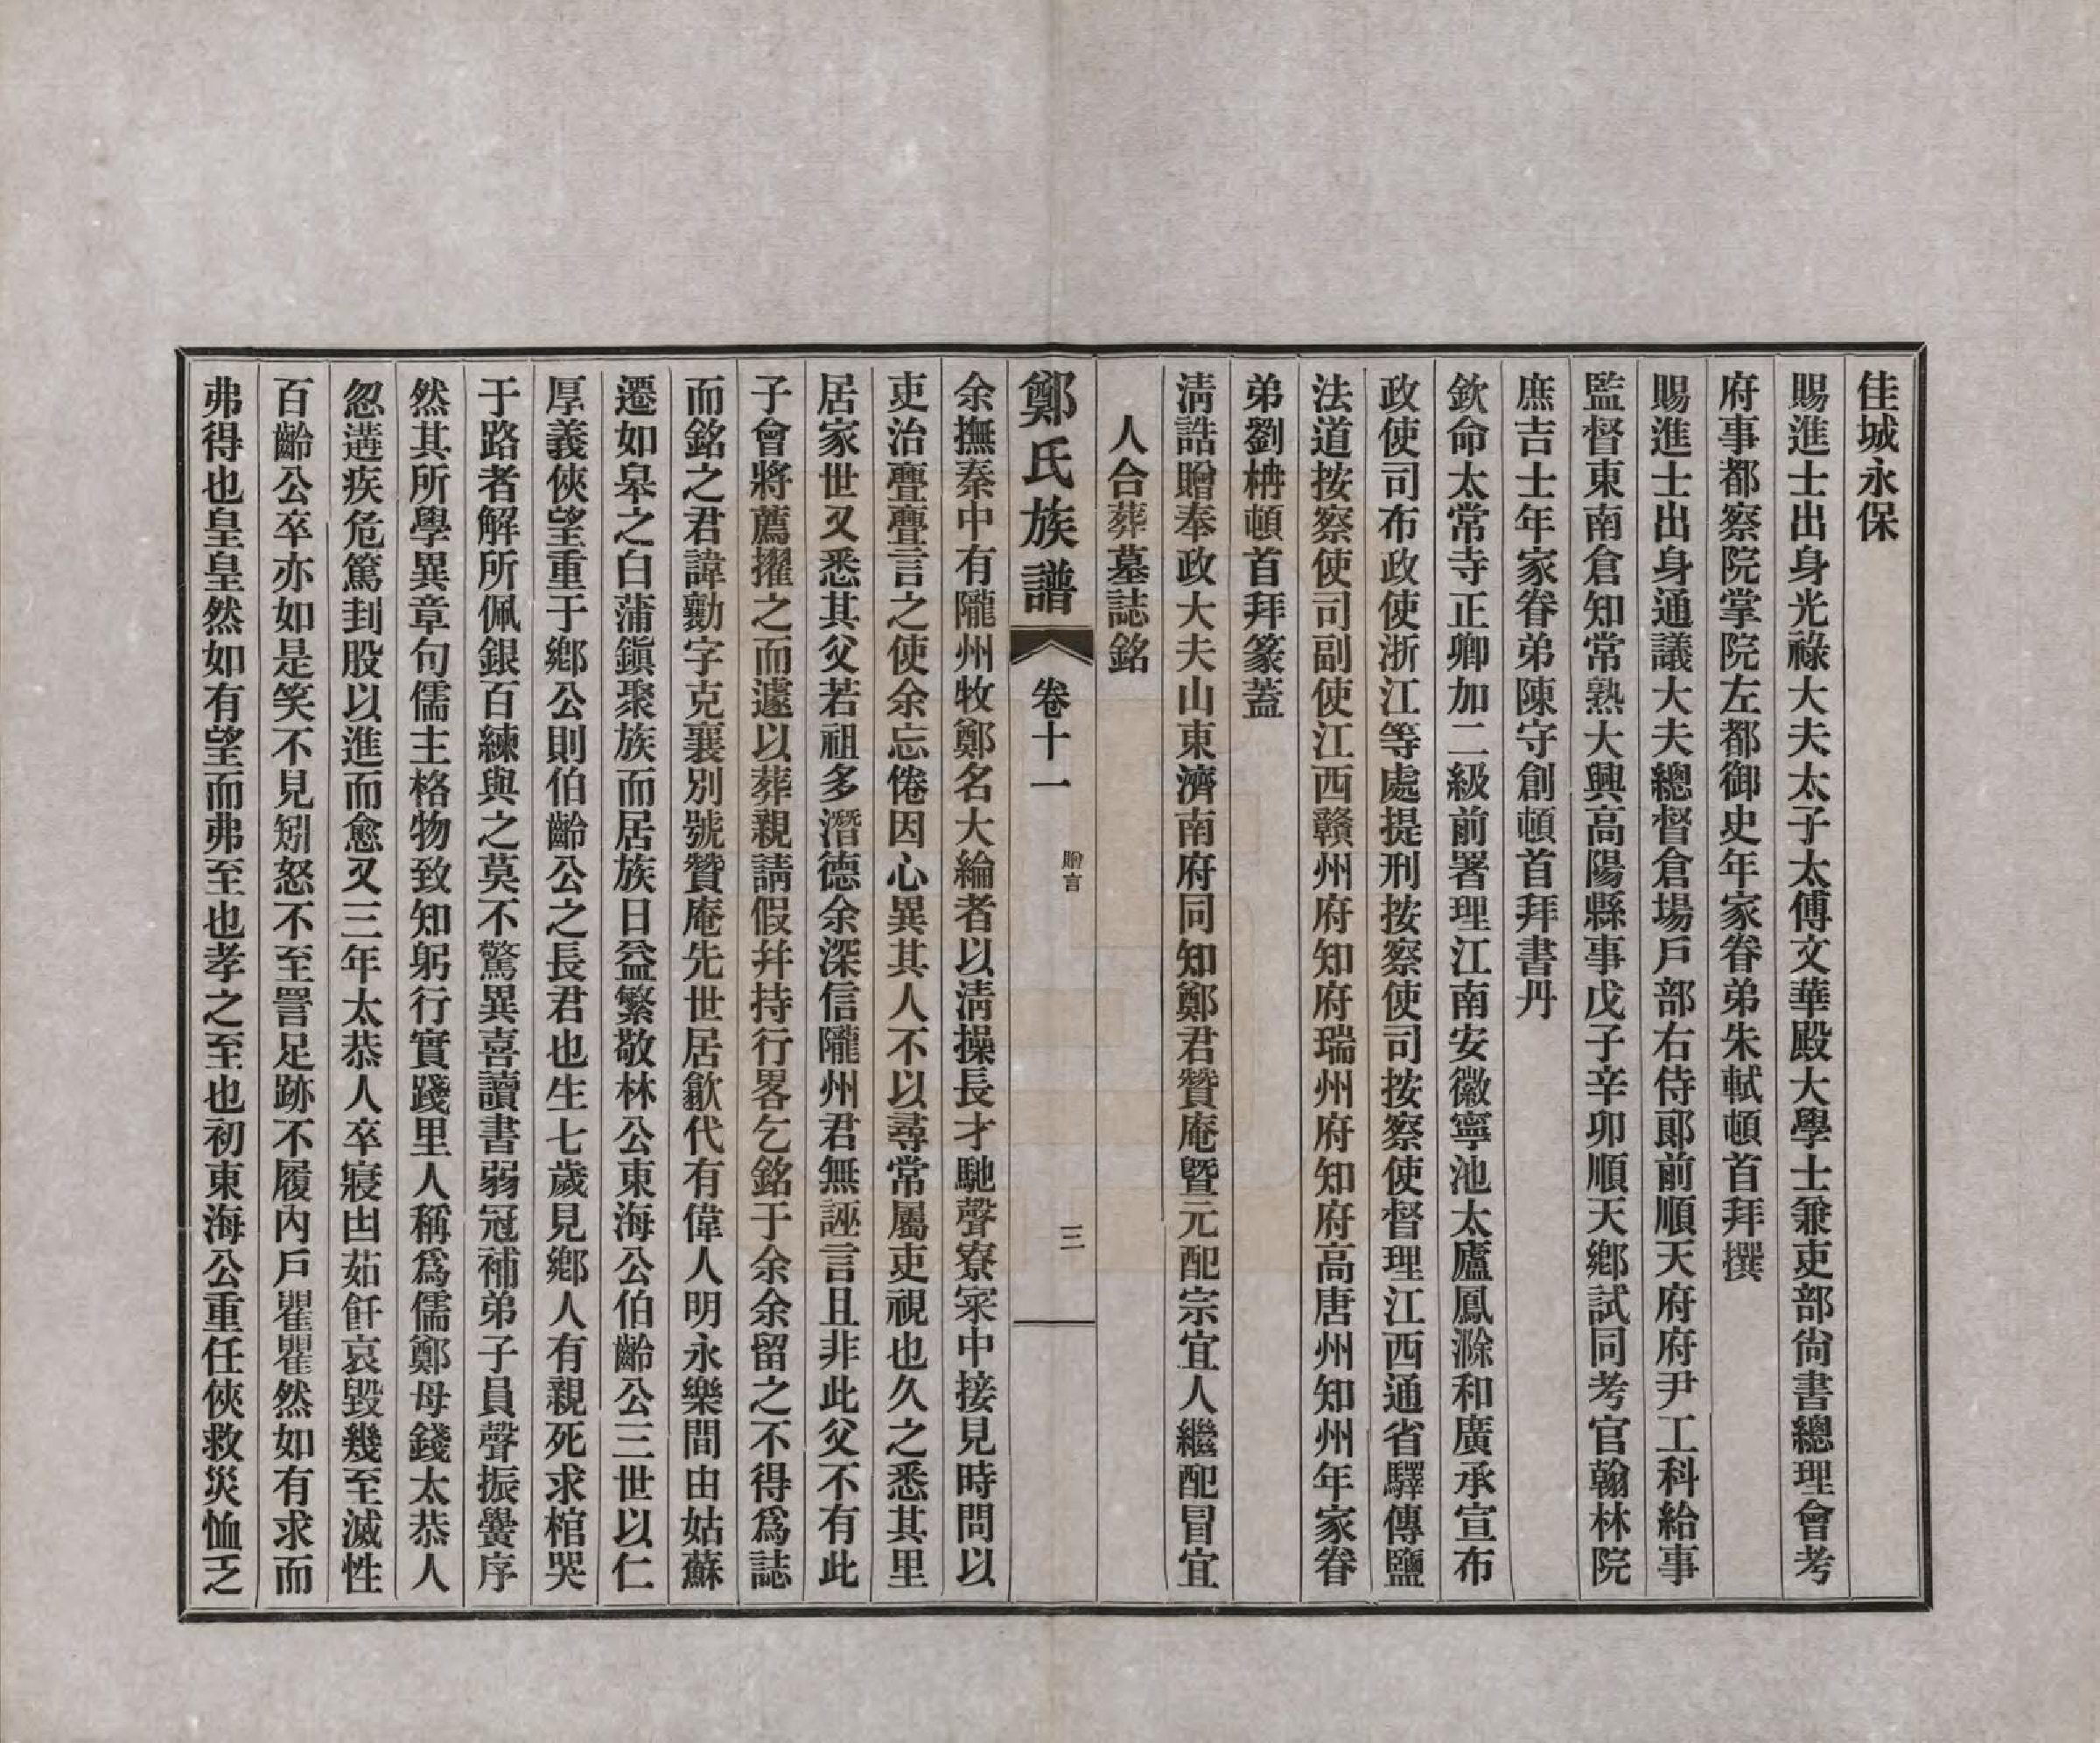 佳城永保
賜進士出身光祿大夫太子太傅文華殿大學士兼吏部尚書總理會考
府事都察院掌院左都御史年家眷弟朱軾頓首拜撰
賜進士出身通議大夫總督倉場戶部右侍郎前順天府府尹工科給事
監督東南倉知常熟大興高陽縣事戊子辛卯順天鄉試同考官翰林院
庶吉士年家眷弟陳守創頓首拜書丹
欽命太常寺正卿加二級前署理江南安徽寧池太廬鳳滁和廣承宣布
政使司布政使浙江等處提刑按察使司按察使督理江西通省驛傳鹽
法道按察使司副使江西贛州府知府瑞州府知府高唐州知州年家眷
弟劉柟頓首拜篆蓋
清誥贈奉政大夫山東濟南府同知鄭君贊庵暨元配宗宜人繼配冒宜
人合葬墓誌銘
鄭氏族譜 卷十一 贈言 三
余撫秦中有隴州牧鄭名大綸者以清操長才馳聲寮寀中接見時問以
吏治亹亹言之使余忘倦因心異其人不以尋常屬吏視也久之悉其里
居家世又悉其父若祖多潛德余深信隴州君無誣言且非此父不有此
子會將薦擢之而遽以葬親請假幷持行畧乞銘于余余留之不得爲誌
而銘之君諱勷字克襄別號贊庵先世居歙代有偉人明永樂間由姑蘇
遷如皋之白蒲鎭聚族而居族日益繁敬林公東海公伯齡公三世以仁
厚義俠望重于鄉公則伯齡公之長君也生七歲見鄉人有親死求棺哭
于路者解所佩銀百練與之莫不驚異喜讀書弱冠補弟子員聲振黌序
然其所學異章句儒主格物致知躬行實踐里人稱爲儒鄭母錢太恭人
忽遘疾危篤刲股以進而愈又三年太恭人卒寢凷茹飦哀毀幾至滅性
百齡公卒亦如是笑不見矧怒不至詈足跡不履內戶瞿瞿然如有求而
弗得也皇皇然如有望而弗至也孝之至也初東海公重任俠救災恤乏